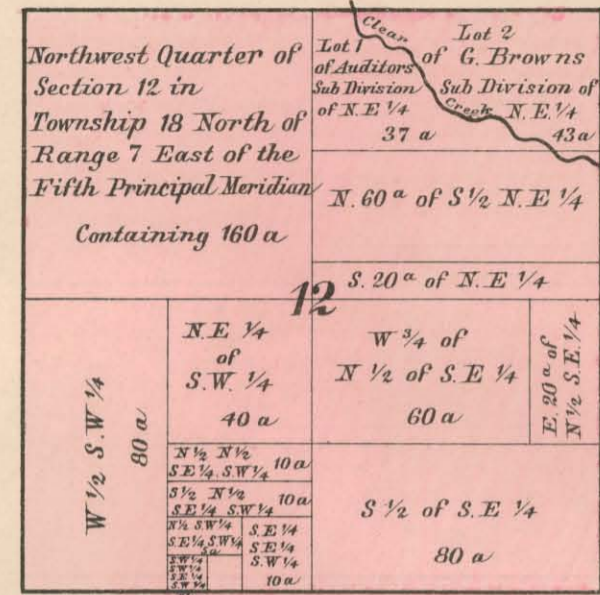 Northwest Quarter of
Section 12 in
Township 18 North of
Range 7 East of the
Fifth Principal Meridian
Containing 160 a
Lot 1
of Auditors
Sub Division
of N.E ¼
37 a
Clear
Creek
Lot 2
of G. Browns
Sub Division of
N.E. ¼
43 a
N. 60 a of S ½ N.E ¼
S. 20 a of N.E ¼
12
W ½ S.W ¼
80 a
N.E ¼
of
S.W. ¼
40 a
W ¾ of
N ½ of S.E ¼
60 a
E. 20 a of
N ½ S.E. ¼
N ½ N ½
S.E ¼. S.W ¼ 10 a
S ½ N ½ 10 a
S.E ¼ S.W ¼
N ½ S.W ¼
S.E ¼ S.W ¼
5 a
S.W ¼
S.W ¼
S.E ¼
S.W ¼
S.E ¼
S.E ¼
S.W ¼
10 a
S ½ of S.E ¼
80 a